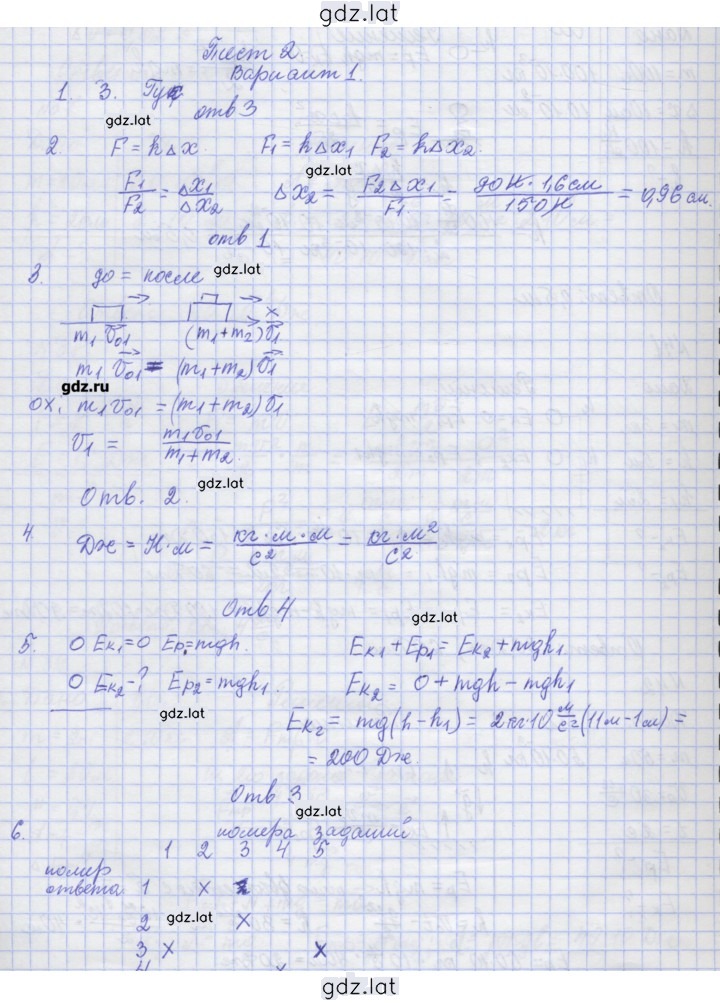 gdz.lat
Тест 2
Вариант 1.
1. 3. Гук
gdz.lat
отв 3
2 F = kΔx. F₁ = kΔx₁ F₂ = kΔx₂.
gdz.lat
F₁/F₂ = Δx₁/Δx₂ Δx₂ = F₂Δx₁/F₁ = 90Н · 1,6 см/150Н = 0,96 см.
отв 1
3. до = после gdz.lat
x
m₁ v₀₁ (m₁+m₂) v₁
m₁ v₀₁ = (m₁+m₂) v₁
gdz.ru
ox: m₁v₀₁ = (m₁+m₂)v₁
v₁ = m₁v₀₁/m₁+m₂.
gdz.lat
Отв. 2.
4 Дж = Н·м = кг·м·м/с² = кг·м²/с²
Отв 4
gdz.lat
5. O Eк₁=0 Ep₁=mgh. Eк₁ + Ep₁ = Eк₂ + mgh₁
O Eк₂-? Ep₂ = mgh₁. Eк₂ = 0 + mgh - mgh₁
gdz.lat
Eк₂ = mg(h-h₁) = 2кг·10 м/с²(11м-1м) =
= 200 Дж.
Отв 3
gdz.lat
6. номера заданий
1 2 3 4 5
номер
ответа 1 x
2 gdz.lat x
3 x x
4 x
gdz.lat